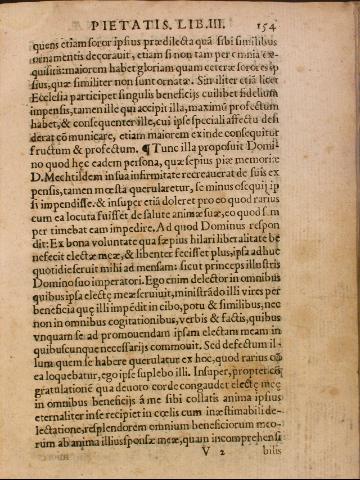 PIETATIS. LIB. III. 154
quens etiam soror ipsius prædilecta quã sibi similibus
ornamentis decorauit, etiam si non tam per omnia ex-
quisitis: maiorem habet gloriam quam ceteræ sorores ip
sius, quæ similiter non sunt ornatæ. Similiter etiã licet
Ecclesia participet singulis beneficijs cuilibet fidelium
impensis, tamen ille qui accipit illa, maximũ profectum
habet, & consequenter ille, cui ipse speciali affectu desi
derat cõmunicare, etiam maiorem exinde consequitur
fructum & profectum. ¶ Tunc illa proposuit Domi-
no quod hęc eadem persona, quæ sepius piæ memoriæ
D. Mechtildem in sua infirmitate recreauerat de suis ex
pensis, tamen mœsta quereretur, se minus
si impendisse. & insuper etiã doleret pro eo quod rarius
cum ea locuta fuisset de salute animæ suæ, eo quod sem
per timebat eam impedire. Ad quod Dominus respon
dit: Ex bona voluntate qua sæpius hilari liberalitate be
nefecit electæ meæ, & libenter fecisset plus, ipsa adhuc
quotidie seruit mihi ad mensam: sicut princeps illustris
Domino suo imperatori. Ego enim delector in omnibus
quibus ipsa electę meæ seruiuit, ministrãdo illi vires per
beneficia quę illi impẽdit in cibo, potu & similibus, nec
non in omnibus cogitationibus, verbis & factis, quibus
vnquam se ad promouendam ipsam electam meam in
quibuscunque necessarijs commouit. Sed defectum il-
lum quem se habere querulatur ex hoc, quod rarius cũ
ea loquebatur, ego ipse suplebo illi. Insuper, propter cõ
gratulationẽ qua deuoto corde congaudet electę meę
in omnibus beneficijs á me sibi collatis anima ipsius
eternaliter in se recipiet in cœlis cum inæstimabili de-
lectatione, resplendorem omnium beneficiorum meo-
rum ab anima illius sponsæ meæ, quam incomprehensi
V 2 bilis